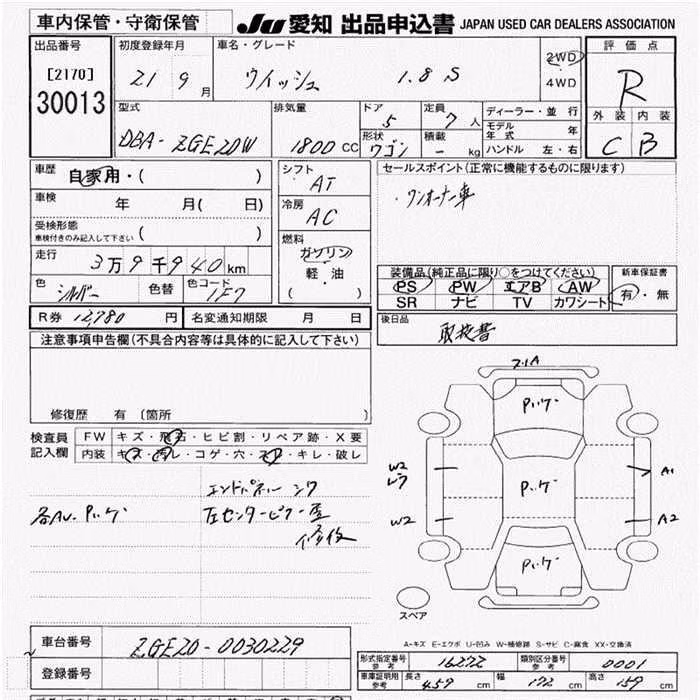 車内保管・守衛保管
JU 愛知 出品申込書 JAPAN USED CAR DEALERS ASSOCIATION
出品番号
[2170]
30013
初度登録年月
21 9 月
車名・グレード
ウイッシュ 1.8 S
2WD
4WD
評価点
R
外装 内装
C B
型式
DBA- ZGE20W
排気量
1800 CC
ドア
5
定員
7 人
形状
ワゴン
積載
- kg
ディーラー・並行
モデル年式 年
ハンドル 左・右
車歴 自家用・( )
車検 年 月( 日)
受検形態
車検付きのみ記入して下さい ( )
走行
3万9千940km
色 シルバー 色替 色コード 1F7
シフト
AT
冷房
AC
燃料
ガソリン
軽・油
( )
セールスポイント(正常に機能するものに限ります)
・ワンオーナー車
装備品(純正品に限り○をつけてください)
PS PW エアB AW
SR ナビ TV カワシート
新車保証書
有・無
R券 12,780 円 名変通知期限 月 日
後日品
取扱書
注意事項申告欄(不具合内容等は具体的に記入して下さい)
修復歴 有 〔箇所 〕
検査員
記入欄
FW キズ・飛石・ヒビ割・リペア跡・X要
内装 キズ・汚レ・コゲ・穴・スレ・キレ・破レ
エンドパネル シワ
各AW. Pいケ
左センターピラー歪
修復
Pいケ
W2
A1
Pいケ
W2
A2
Pいケ
スペア
A-キズ E-エクボ U-凹み W-補修跡 S-サビ C-腐食 XX-交換済
車台番号 ZGE20-0030229
登録番号
形式指定番号 参考 16272 類別区分番号 参考 0001
車庫証明用 参考 長さ 459 cm 幅 172 cm 高さ 159 cm